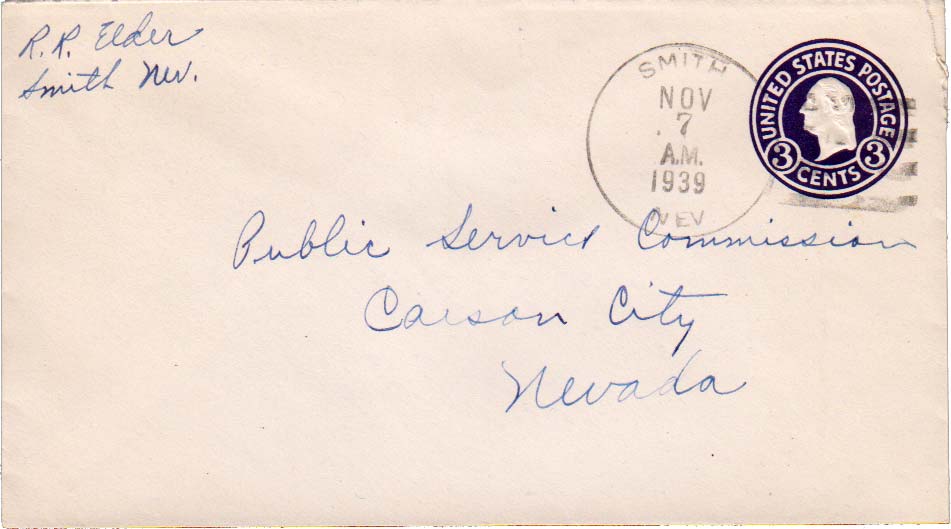 R.R. Elder
Smith Nev.
SMITH
NOV
7
A.M.
1939
NEV
UNITED STATES POSTAGE
3 CENTS 3
Public Service Commission
Carson City
Nevada